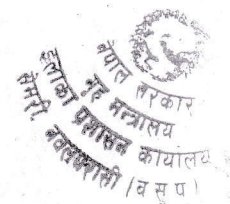 नेपाल सरकार
गृह मन्त्रालय
इलाका प्रशासन कार्यालय
सेमरी
नवलपरासी (ब सु प)